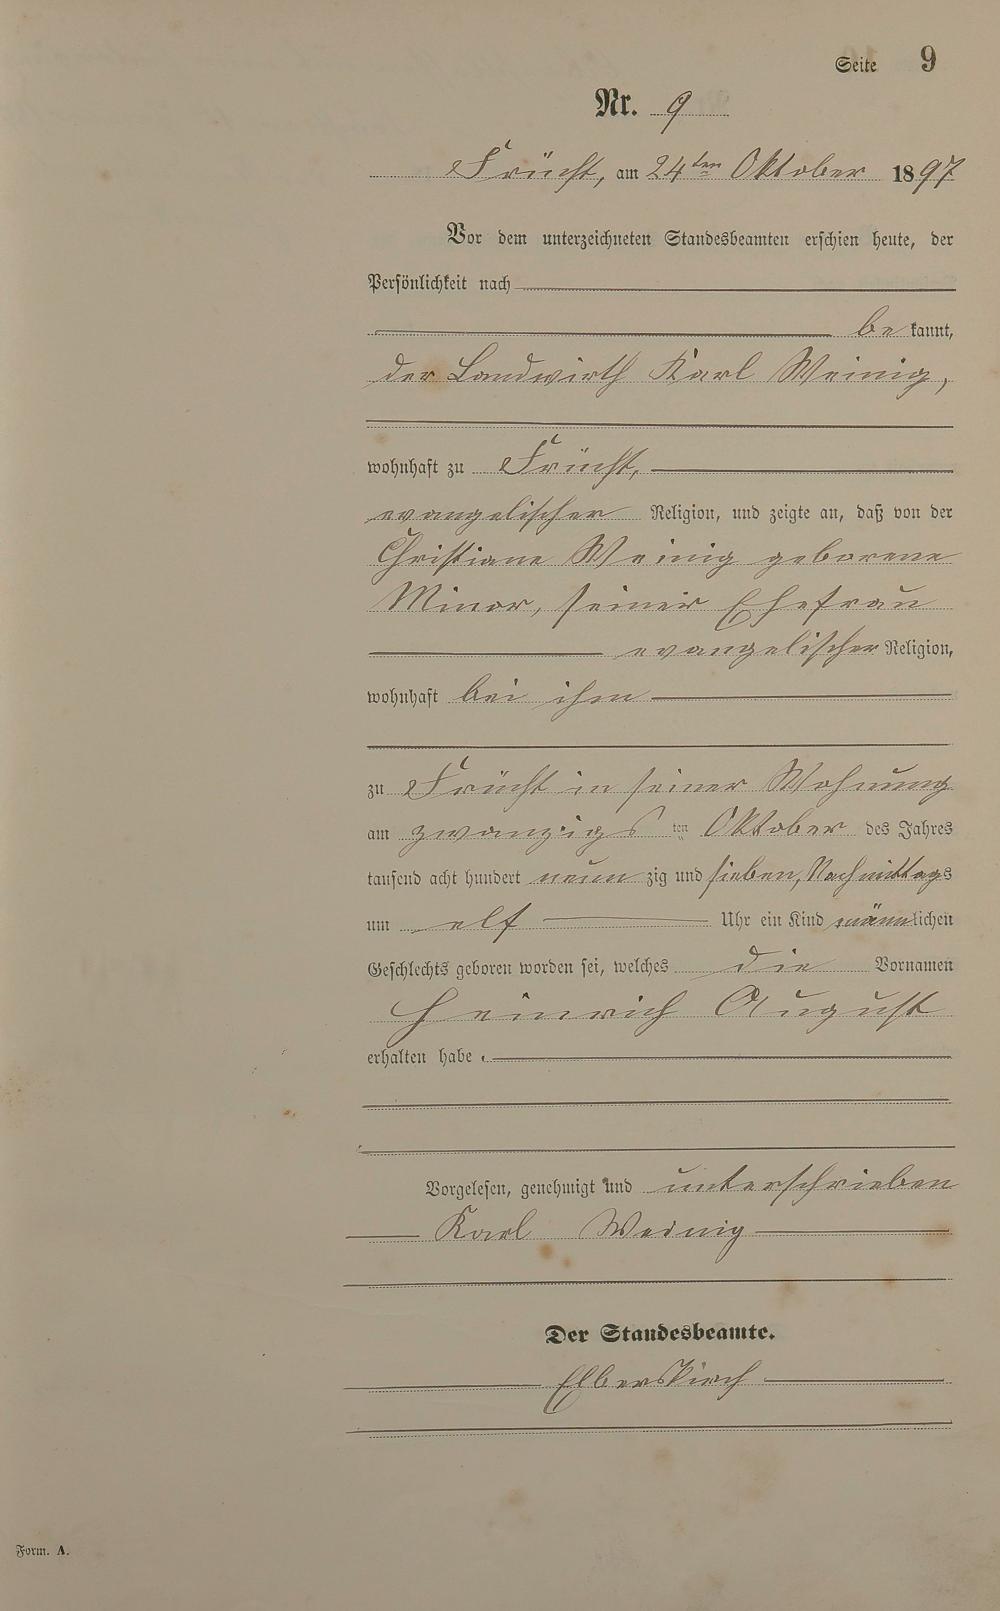 Seite 9
Nr. 9
Frücht, am 24ten Oktober 1897
Vor dem unterzeichneten Standesbeamten erschien heute, der
Persönlichkeit nach
be kannt,
der Landwirth Karl Weinig,
wohnhaft zu Frücht,
evangelischer Religion, und zeigte an, daß von der
Christiane Weinig geborene
Minor, seiner Ehefrau
evangelischer Religion,
wohnhaft bei ihm
zu Frücht in seiner Wohnung
am zwanzigs ten Oktober des Jahres
tausend acht hundert neun zig und sieben, Nachmittags
um elf Uhr ein Kind männlichen
Geschlechts geboren worden sei, welches die Vornamen
Heinrich August
erhalten habe.
Vorgelesen, genehmigt und unterschrieben
Karl Weinig
Der Standesbeamte.
Elberskirch
Form. A.